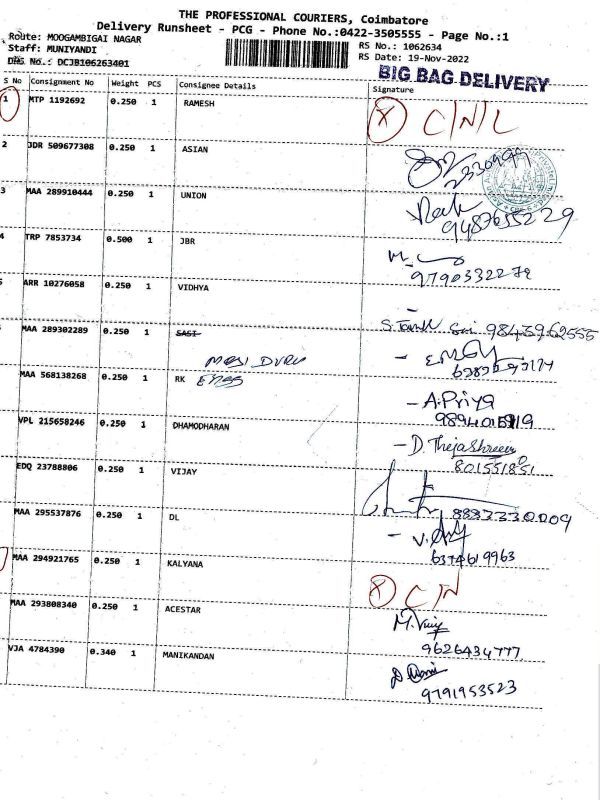 THE PROFESSIONAL COURIERS, Coimbatore
Delivery Runsheet - PCG - Phone No.:0422-3505555 - Page No.:1
Route: MOOGAMBIGAI NAGAR
Staff: MUNIYANDI
DRS No.: DCJB106263401
RS No.: 1062634
RS Date: 19-Nov-2022
BIG BAG DELIVERY
S No Consignment No Weight PCS Consignee Details Signature
1 MTP 1192692 0.250 1 RAMESH X C/N/L
2 JDR 509677308 0.250 1 ASIAN
3 MAA 289910444 0.250 1 UNION 9487655229
4 TRP 7853734 0.500 1 JBR 9790332272
ARR 10276058 0.250 1 VIDHYA
9843962555
MAA 289302289 0.250 1 SASI
MAA 568138268 0.250 1 RK
- A.Priya
VPL 215658246 0.250 1 DHAMODHARAN
- D. Thejashree
EDQ 23788806 0.250 1 VIJAY
MAA 295537876 0.250 1 DL
6374619963
MAA 294921765 0.250 1 KALYANA X C/N
MAA 293808340 0.250 1 ACESTAR
9626434777
VJA 4784390 0.340 1 MANIKANDAN
9791953523